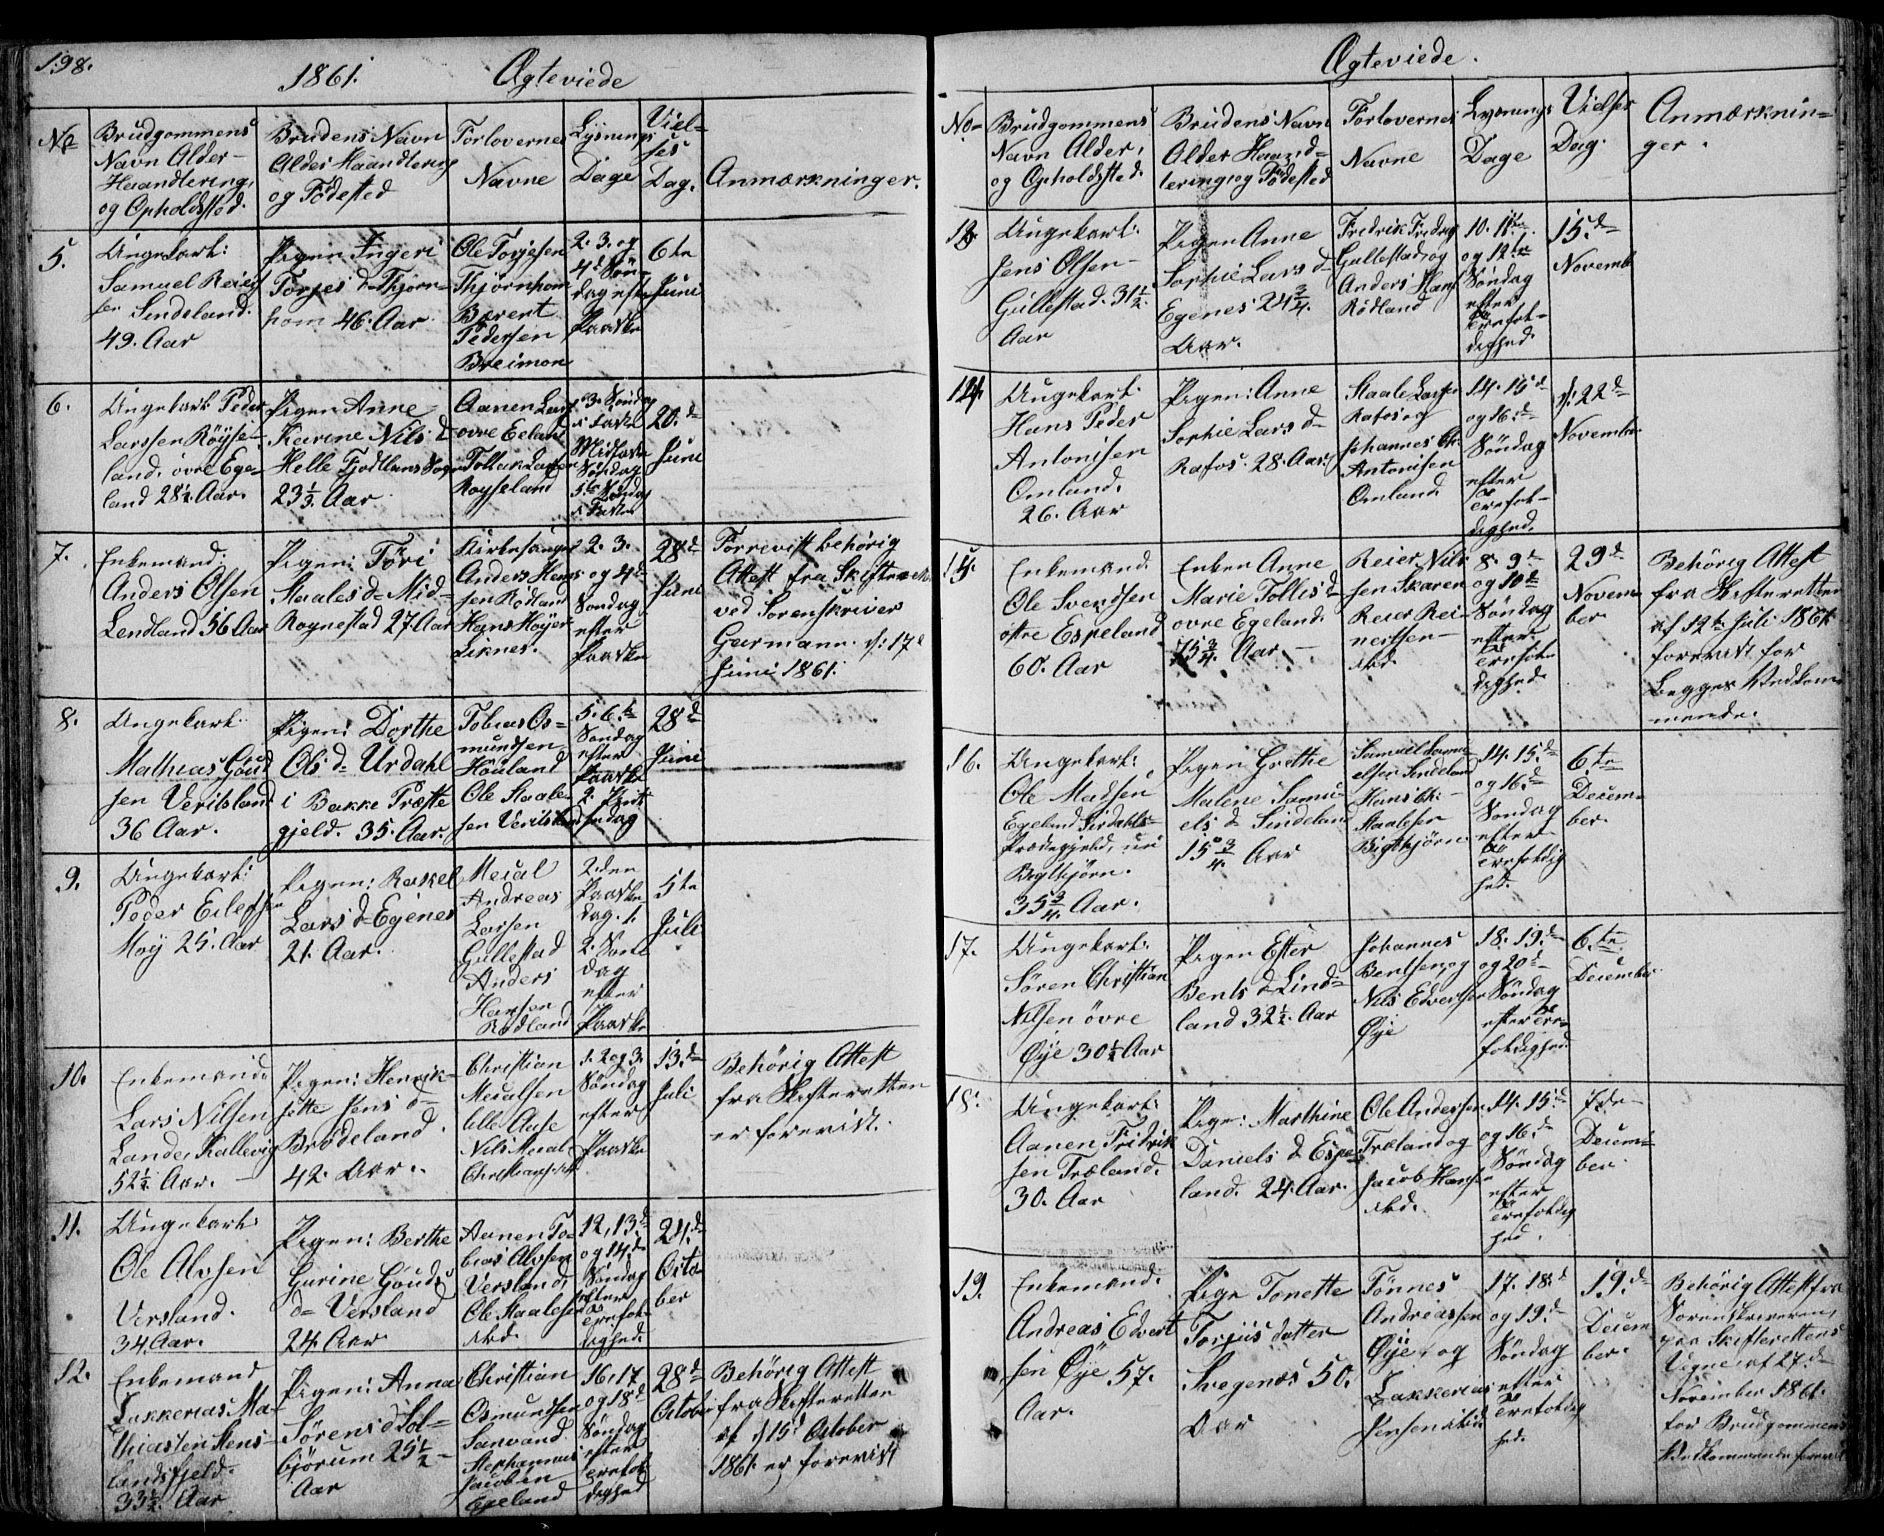 198.
1861. Ægteviede
No
Brudgommens
Navn Alder
Haandtering,
og Opholdsted.
Brudens Navn
Alder Haandtering
og Födested
Forlovernes
Navne
Lysnings
Dage
Viel-
ses
Dag.
Anmærkninger.
5.
Ungekarl:
Samuel Reier
sen Sindland.
49. Aar
Pigen Ingeri
Torjes d Thjörn-
hom 46. Aar
Ole Torjesen
Thjörnhom
Berent
Pedersen
Breimon
2. 3. og
4d Sön-
dag efter
Paaske
6te
Juni
6.
Ungekarl Peder
Larssen Röyse-
land. övre Ege-
land 28½ Aar.
Pigen Anne
Karine Nils d
Helle Fjotlans Sogn
23⅓ Aar
Aanen Lars
övre Egeland
Tollak Larsen
Royseland
3. Söndag
i Faste
Midfaste
Söndag
5te Söndag
i Faste
20.de
Juni
7.
Enkemand:
Anders Olsen
Lendland 56 Aar
Pigen: Tori
Staales d Mid-
Rognestad 27 Aar
Kirkesanger
Anders Han-
sen Rödland
Hans Höyer
Liknes.
2. 3.
og 4de
Söndag
efter
Paaske
28de
Juni
Forevist behörig
Attest fra Skifteret
ved Sorenskriver
Garmann d: 17d
Juni 1861.
8.
Ungekarl:
Mathias Goud
sen Veritsland
36 Aar.
Pigen: Dorthe
Ols d Urdahl
i Bakke Præste
gjeld. 35. Aar.
Tobias Os-
mundsen
Houland
Ole Staale-
sen Veritsland
5. 6.te
Söndag
efter
Paaske
2. Pint
sedag
28de
Juni
9.
Ungekarl:
Peder Eilefsen
Moy 25. Aar
Pigen: Rakel
Lars d Egenes
21. Aar.
Meial
Andreas
Larsen
Gullestad
Anders
Hansen
Rödland
2.den
Paaske
dag. 1.
2. Sön
dag
efter
Paaske
5te
Juli
10.
Enkemand:
Lars Nilsen
Lande, Kallevig
52½ Aar.
Pigen: Henrik-
jotte Jens d
Brödeland.
42. Aar.
Christian
Meialsen
lille Aase
Nils Meial
1. 2 og 3.
Söndag
efter
Paaske
13.de
Juli
Behörig Attest
fra Skifteretten
er forevist.
11.
Ungekarl:
Ole Alvsen
Versland.
34 Aar.
Pigen: Berthe
Gurine Gouds
d Versland
24 Aar
Aanen To-
bias Alvsen
Versland,
Ole Staalesen
ibd.
12, 13.de
og 14.de
Söndag
efter
Trefol-
dighed.
24.de
Octo
ber
12.
Enkemand
Zakkerias Ma-
thiassen Stens-
landsfjeld.
33½ Aar
Pigen: Anna
Sörens d Sol-
björum 25½
Aar
Christian
Osmundsen
Sanvand
Stephannus
Jacobsen
Egeland
16, 17
og 18de
Söndag
efter
Trefol
dighed
28de
October
Behörig Attest
fra Skifteretten
af d 15d October
1861. er forevist
Ægteviede.
No
Brudgommens
Navn Alder,
og Opholdsted.
Brudens Navn
Alder Haand-
tering, og Födested
Forlovernes
Navne
Lysnings
Dage
Vielses
Dag.
Anmærknin-
ger.
13.
Ungekarl:
Jens Olsen
Gullestad. 31½
Aar
Pigen Anne
Sophie Lars d
Egenes 24¾
Aar.
Fredrik Fredrik
Gullestad, og
Anders Hans
Rödland
10. 11te
og 12te
Söndag
efter
Trefol-
dighed.
15.de
Novemb
14.
Ungekarl:
Hans Peder
Antonisen
Omland.
26. Aar
Pigen: Anne
Sophie Lars d
Rafos. 28. Aar.
Staale Larsen
Rafos og
Johannes Chr.
Antonisen
Omland.
14. 15de
og 16.de
Söndag
efter
Trefol-
dighed.
d: 22de
November
15.
Enkemand.
Ole Svendsen
östre Espeland
60. Aar
Enken Anne
Marie Tollis d
övre Egeland.
Aar.
Reier Nils
sen Skaren
Reier Rei-
nertsen
ibd.
8. 9de
og 10de
Söndag
efter
Trefol-
dighed.
29de
Novem
ber.
Behörig Attest
fra Skifteretten
af 12te Juli 1861.
forevist for
begges Vedkom-
mende.
16.
Ungekarl:
Ole Madsen
Egeland Sirdahls
Præstegjeld, nu i
Bigthjörn.
35¾ Aar.
Pigen Grethe
Malene Samu-
els d Sindland
Aar
Samuel Samu-
elsen Sindland
Hans Ch.
Staalesen
Bigthjörn
14. 15.de
og 16.de
Söndag
efter
Trefoldig
hed.
6te
Decem-
ber.
17.
Ungekarl:
Sören Christian
Nilsen övre
Öye 30½ Aar
Pigen Ester
Bents d Lind-
land 32½ Aar
Johannes
Bentsen og
Nils Edvertsen
Öye
18. 19.de
og 20de
Söndag
efter Tre-
foldighed
6.te
December
18.
Ungekarl:
Aanen Fredrik
sen Træland.
30. Aar
Pige: Marthine
Daniels d Espe-
land. 24 Aar.
Ole Andersen
Træland og
Jacob Hansen
ibd.
14. 15.de
og 16.de
Söndag
efter
Trefoldig
hed.
7de
Decem-
ber.
19.
Enkemand.
Andreas Edvert
sen Öye 57.
Aar.
Pige Tonette
Torjiis datter
Svegenæs 50.
Aar
Tönnes
Andreassen
Öye, og
Zakkerias
Jensen ibid
17. 18.de
og 19.de
Söndag
efter
Trefoldig
hed.
19.de
Decem
ber.
Behörig Attest fra
Sorenskriveren,
paa Skifterettens
Vegne af 27.de
November 1861.
for Brudgommens
Vedkommende forevist